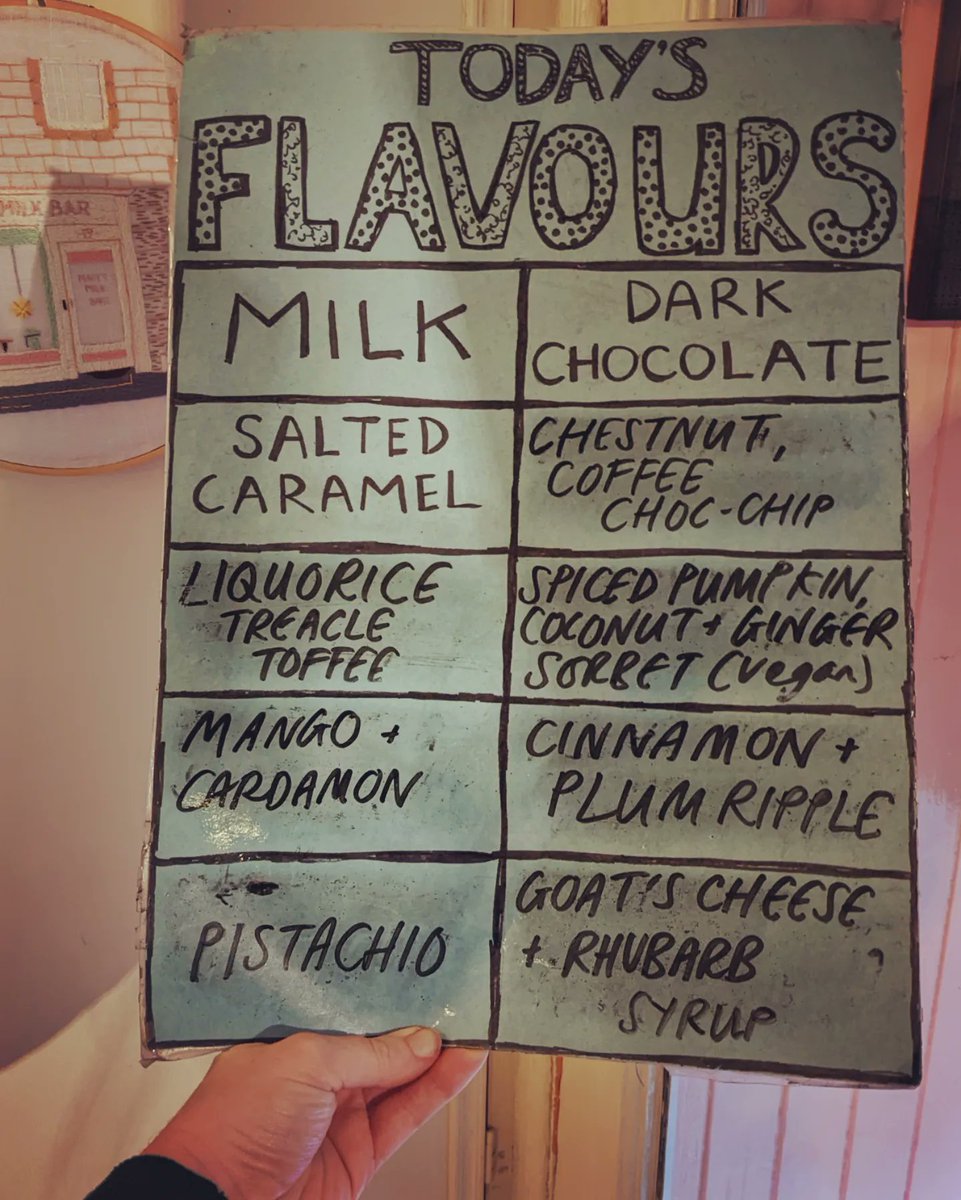 TODAY'S
FLAVOURS
MILK
DARK
CHOCOLATE
SALTED
CARAMEL
CHESTNUT,
COFFEE
CHOC-CHIP
LIQUORICE
TREACLE
TOFFEE
SPICED PUMPKIN,
COCONUT + GINGER
SORBET (vegan)
MANGO +
CARDAMON
CINNAMON +
PLUM RIPPLE
PISTACHIO
GOAT'S CHEESE
+ RHUBARB
SYRUP
MILK BAR
MILK
BAR